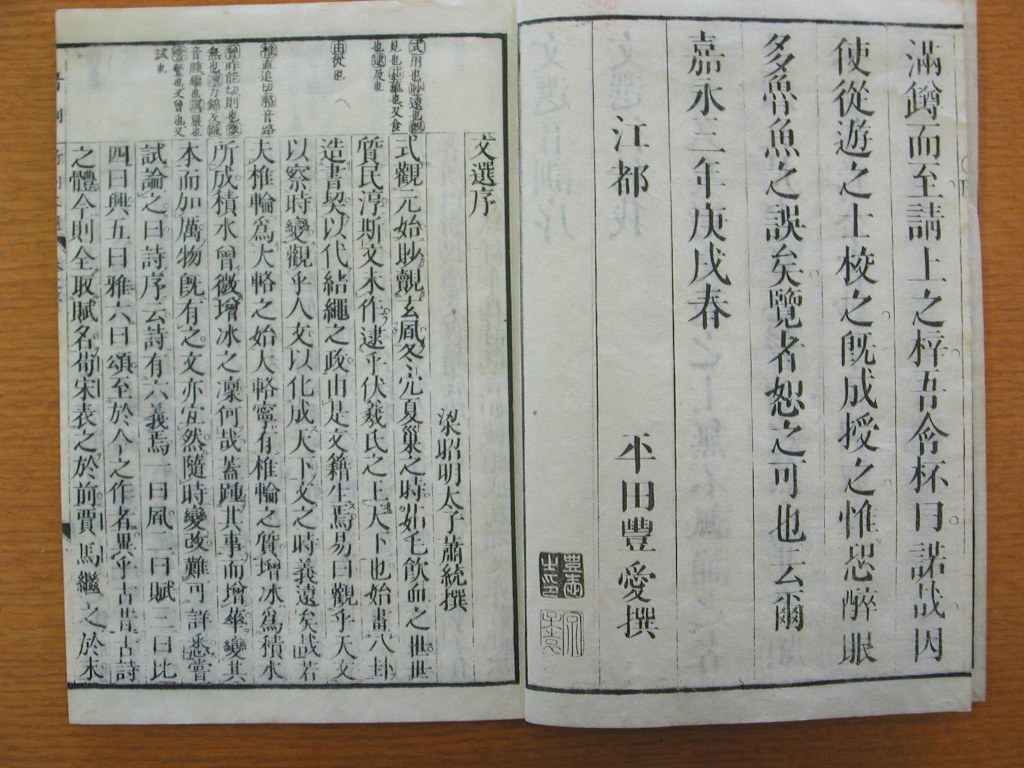 滿罇而至請上之梓吾含杯曰諾哉因
使從遊之士校之旣成授之惟恐醉眼
多魯魚之誤矣覽者恕之可也云爾
嘉永三年庚戌春
江都　平田豐愛撰
文選序
梁昭明太子蕭統撰
式觀元始眇覿玄風冬穴夏巢之時茹毛飲血之世世
質民淳斯文未作逮乎伏羲氏之王天下也始畫八卦
造書契以代結繩之政由是文籍生焉易曰觀乎天文
以察時變觀乎人文以化成天下文之時義遠矣哉若
夫椎輪爲大輅之始大輅寧有椎輪之質增冰爲積水
所成積水曾微增冰之凜何哉蓋踵其事而增華變其
本而加厲物旣有之文亦宜然隨時變改難可詳悉嘗
試論之曰詩序云詩有六義焉一曰風二曰賦三曰比
四曰興五曰雅六曰頌至於今之作者異乎古昔古詩
之體今則全取賦名荀宋表之於前賈馬繼之於末